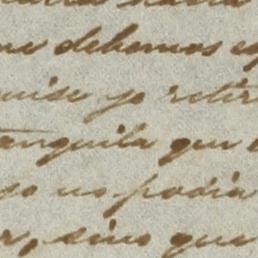 me debemos es
quise yo retir
tranquila que
so no podia
r, sino que